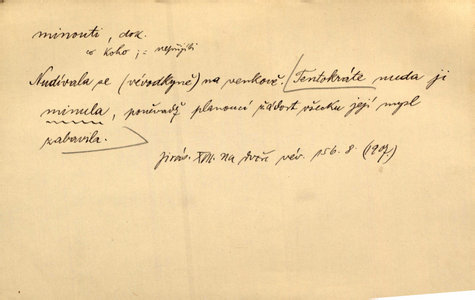 minouti, dok.
co koho ; = nepřijíti
Nudívala se (vévodkyně) na venkově. Tentokráte nuda ji
minula, poněvadž planoucí žádost všecku její mysl
zabavila.
Jirás. XIII. Na dvoře vév. 156. 8 (1907)